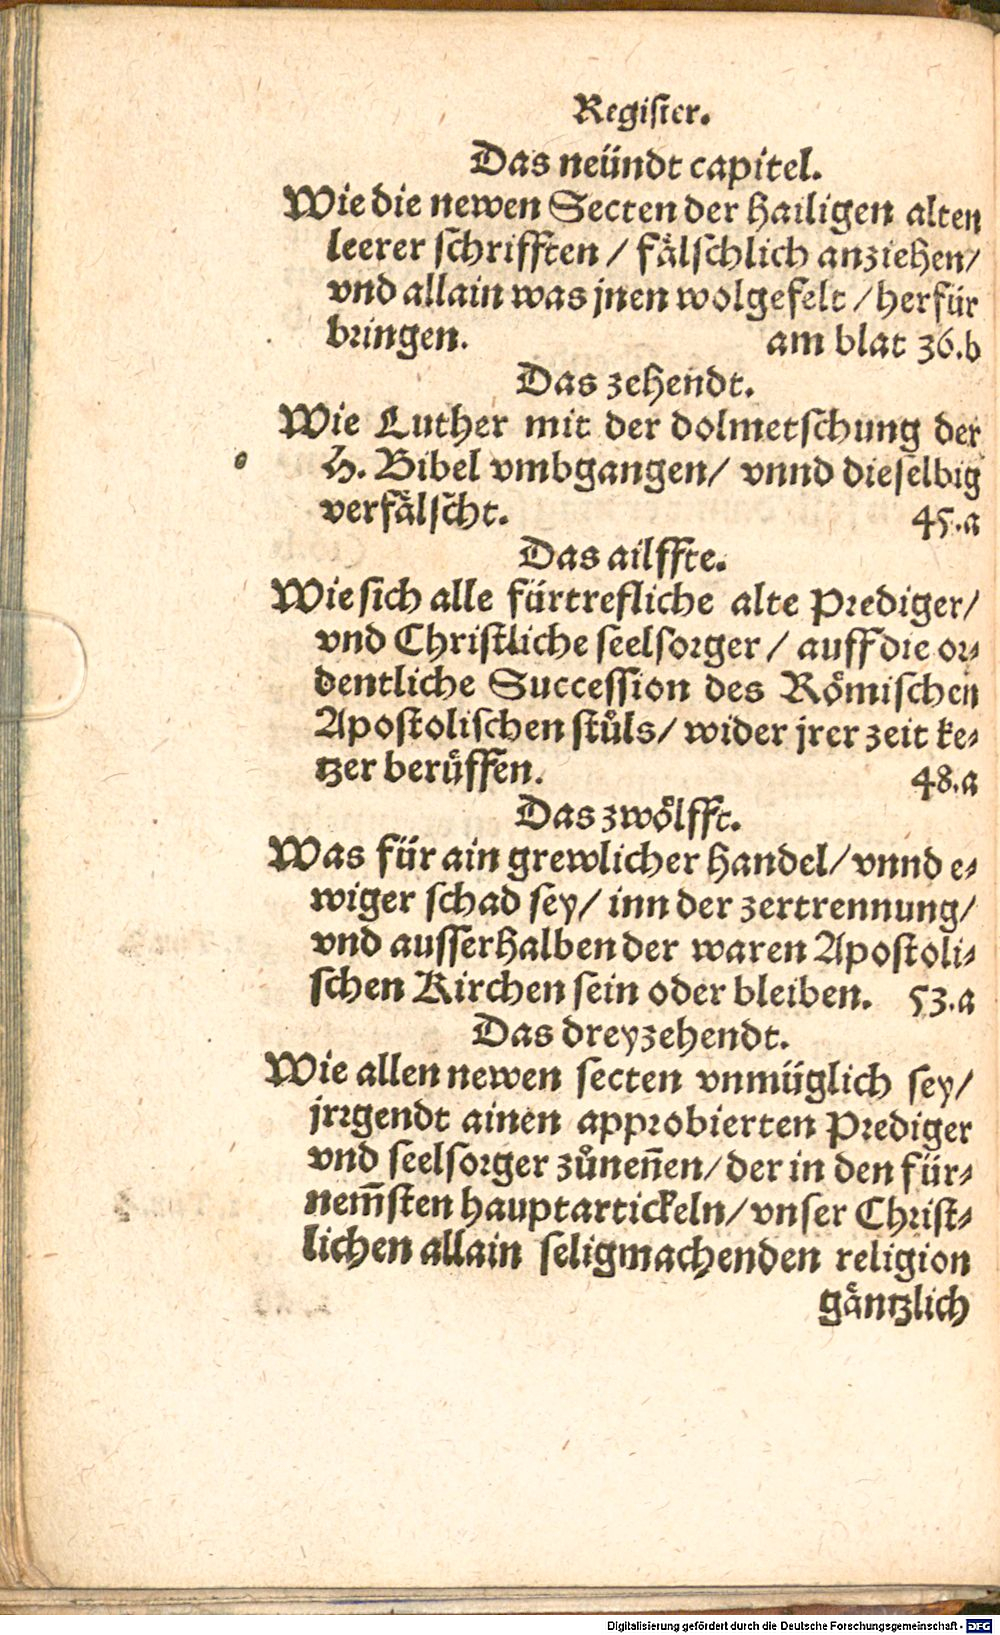 Register.
Das neündt capitel.
Wie die newen Secten der hailigen alten
leerer schrifften / fälschlich anziehen/
vnd allain was jnen wolgefelt / herfür
bringen. am blat 36.b
Das zehendt.
Wie Luther mit der dolmetschung der
H. Bibel vmbgangen/ vnnd dieselbig
verfälscht. 45.a
Das ailffte.
Wie sich alle fürtrefliche alte Prediger/
vnd Christliche seelsorger / auff die or⸗
dentliche Succession des Römischen
Apostolischen stůls/ wider jrer zeit ke⸗
tzer berůffen. 48.a
Das zwölfft.
Was für ain grewlicher handel/ vnnd e⸗
wiger schad sey/ inn der zertrennung/
vnd ausserhalben der waren Apostoli⸗
schen Kirchen sein oder bleiben. 53.a
Das dreyzehendt.
Wie allen newen secten vnmüglich sey/
jrrgendt ainen approbierten Prediger
vnd seelsorger zůneñen/ der in den für⸗
nem̃sten hauptartickeln/ vnser Christ⸗
lichen allain seligmachenden religion
gäntzlich
Digitalisierung gefördert durch die Deutsche Forschungsgemeinschaft - DFG